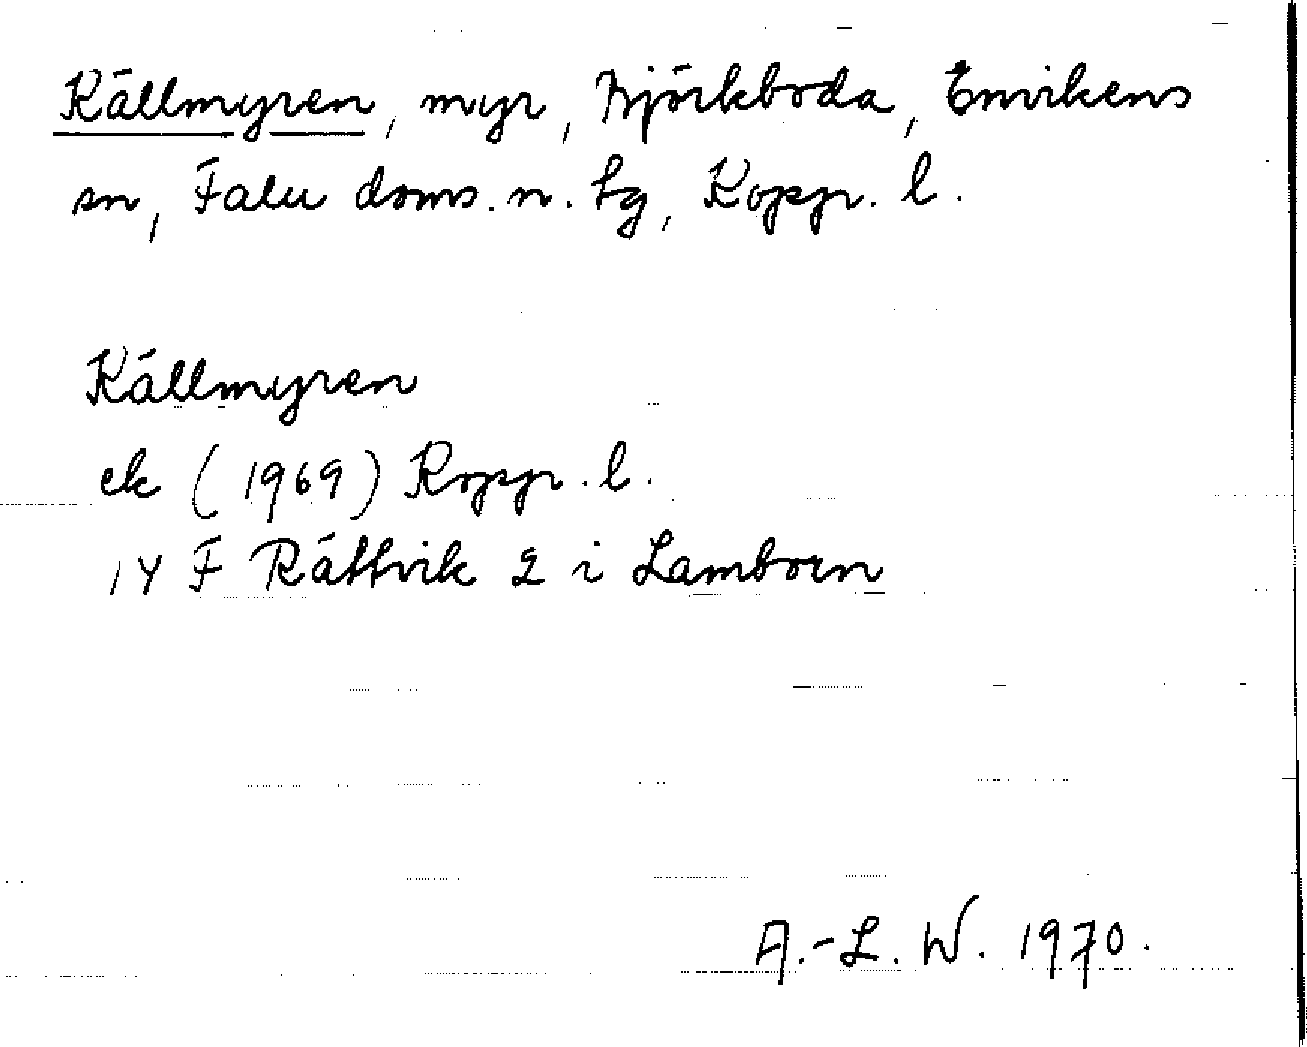 Källmyren, myr, Björkboda, Envikens
sn, Falu doms. n. tg, Koppr. l.
Källmyren
ek (1969) Koppr. l.
14 F Rättvik 2 i Lamborn
A.-L. W. 1970.